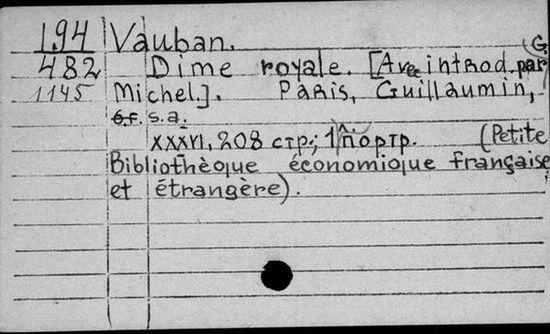 194 Vauban.
482 Dime royale. [Avec introd. par G.
1145 Michel]. Paris, Guillaumin,
б.г. s.a.
XXXVI, 208 стр.; 1 л. портр. (Petite
Bibliothèque économique française
et étrangère).